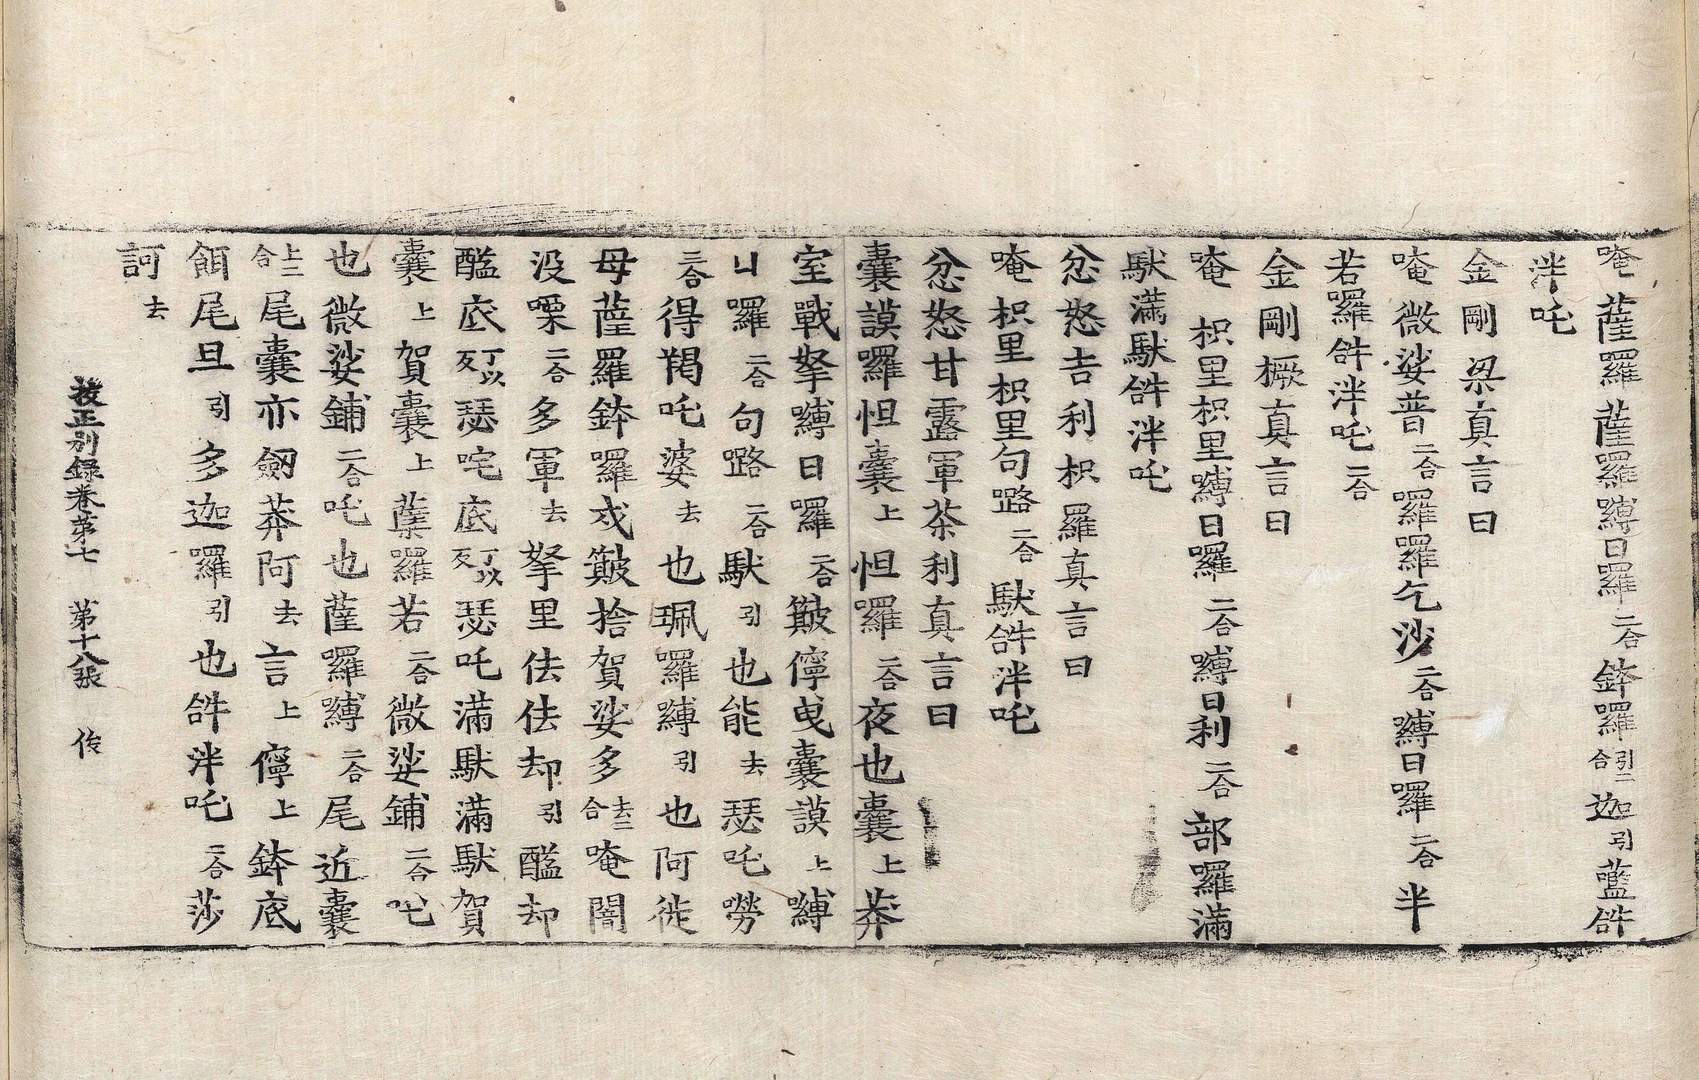 唵薩羅薩羅嚩日羅二合鉢羅引二合迦引藍𤙖
泮吒
金剛梁真言曰
唵微娑普二合囉羅乞沙二合嚩日囉二合半
若羅𤙖泮吒二合
金剛橛真言曰
唵枳里枳里嚩日羅二合嚩日利二合部囉滿
馱滿馱𤙖泮吒
忿怒吉利枳羅真言曰
唵枳里枳里句𡀔二合馱𤙖泮吒
忿怒甘露軍荼利真言曰
囊謨囉怛囊上怛囉二合夜也囊上莽
室戰拏嚩日囉二合簸儜曳囊謨上嚩
囉二合句𡀔二合馱引也能去瑟吒嘮
三合得羯吒婆去也珮羅嚩引也阿徙
母薩羅鉢囉戍簸捨賀娑多去二合唵闇
没㗚二合多軍去拏里佉佉却引醯却
醯底丁以反瑟吒底丁以反瑟吒滿馱滿馱賀
囊上賀囊上蘖羅若二合微娑鋪二合吒
也微娑鋪二合吒也薩囉嚩二合尾近囊
上二合尾囊亦劒莽阿去言上儜上鉢底
餌尾旦引多迦囉引也𤙖泮吒二合莎
訶去
校正別録卷第七　第十八張　俊